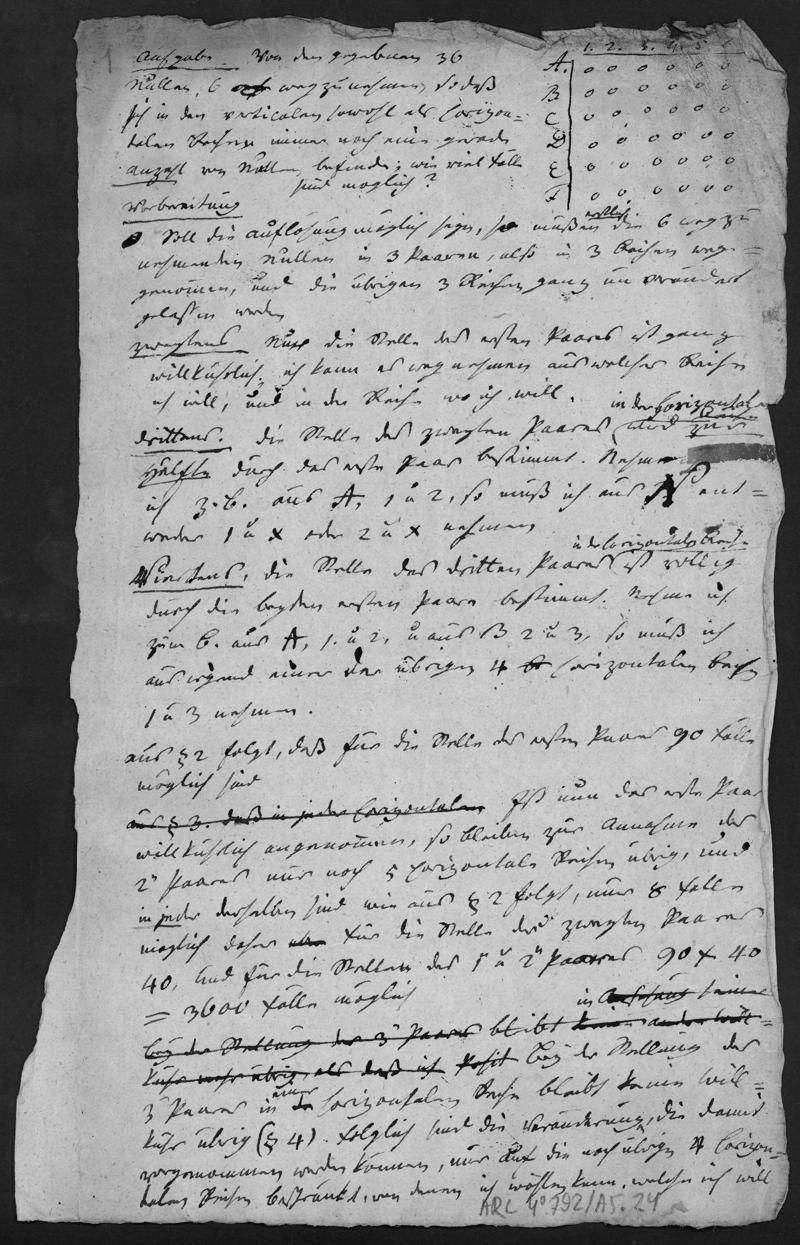 1. 2. 3. 4. 5.
Aufgabe. Von den gegebenen 36
A. o o o o o o
Nullen, 6 wegzunehmen, so daß
B o o o o o o
sich in den verticalen sowohl als horizon=
C o o o o o o
talen Reihen immer noch eine gerade
D o o o o o o
Anzahl von Nullen befinde; wie viel Fälle
E o o o o o o
sind möglich?
F o o o o o o
Vorbereitung
erstlich
Soll die Auflösung möglich seyn, so müßen die 6 wegzu
nehmenden Nullen in 3 Paaren, also in 3 Reihen wegge=
genommen, und die übrigen 3 Reihen ganz unverändert
gelassen werden
zweytens die Stelle des ersten Paares ist ganz
willkührlich, ich kann es wegnehmen aus welcher Reihe
ich will, und in der Reihe wo ich will.
in der horizontalen Reihe
drittens. die Stelle des zweyten Paares wird zur
Hälfte durch das erste Paar bestimmt. Nehme
ich z. B. aus A, 1 u 2, so muß ich aus B ent=
weder 1 u x oder 2 u x nehmen
in der horizontalen Reihe
Viertens, die Stelle des dritten Paares ist völlig
durch die beyden ersten Paare bestimmt. Nehme ich
zum B. aus A, 1. u 2, u aus B 2 u 3, so muß ich
aus irgend einer der übrigen 4 horizontalen Reihen
1 u 3 nehmen.
aus § 2 folgt, daß für die Stelle des ersten Paares 90 Fälle
möglich sind
aus § 3. daß in jeder horizontalen Ist nun das erste Paar
willkührlich angenommen, so bleiben zur Annahme des
2n Paares nur noch 5 horizontale Reihen übrig, und
in jeder derselben sind wie aus § 2 folgt, nur 8 Fälle
möglich daher für die Stelle des zweyten Paares
40, und für die Stellen des 1n u 2n Paares 90 x 40
= 3600 Fälle möglich
bey der Stellung des 3n Paares bleibt keine andre Will=
kühr mehr übrig, als daß ich bey der Stellung des
3n Paares in einer horizontalen Reihe bleibt keine Will=
kühr übrig (§ 4). folglich sind die Veränderungen, die damit
vorgenommen werden können, nur auf die noch übrigen 4 horizon=
talen Reihen beschränkt, von denen ich wählen kann, welche ich will
ARC 4° 792/A5.24